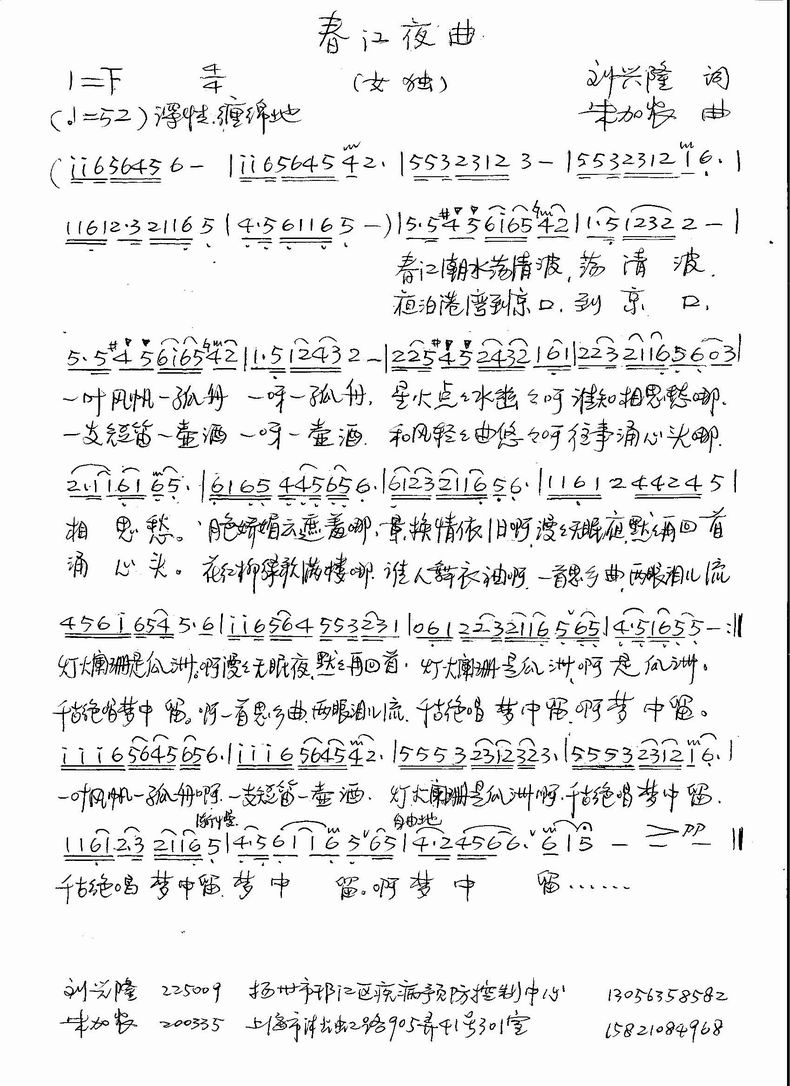 春江夜曲
1=F 4/4 （女独） 刘兴隆 词
（♩=52）深情.缠绵地 朱加农 曲
(i i 6 5 6 4 5 6 - | i i 6 5 6 4 5 4 2. | 5 5 3 2 3 1 2 3 - | 5 5 3 2 3 1 2 1 6. |
1 1 6 1 2·3 2 1 1 6 5 | 4·5 6 1 1 6 5 -) | 5·5 #4 5 6 i 6 5 4 2 | 1·5 1 2 3 2 2 - |
春江潮水荡清波,荡清波.
夜泊港湾到京口.到京口.
5·5 #4 5 6 i 6 5 4 2 | 1·5 1 2 4 3 2 - | 2 2 5 #4 5 2 4 3 2 1 6 1 | 2 2 3 2 1 1 6 5 6 0 3 |
一叶风帆一孤舟 一呀一孤舟. 星火点点水幽幽呵谁知相思愁哪.
一支短笛一壶酒 一呀一壶酒. 和风轻轻曲悠悠呵往事涌心头哪.
2·1 1 6 1 6 5. | 6 1 6 5 4 4 5 6 5 6. | 6 1 2 3 2 1 1 6 5 6. | 1 1 6 1 2 4 4 2 4 5 |
相思愁。月色娇媚云遮羞哪,景换情依旧啊,漫漫无眠夜,默默再回首
涌心头。花红柳绿歌满楼哪.谁人舞衣袖啊.一首思乡曲,两眼泪儿流
4 5 6 i 6 5 4 5·6 | i i 6 5 6 4 5 5 3 2 3 1 | 0 6 1 2 2·3 2 1 1 6 5 6 5 | 4·5 1 6 5 5 - :||
灯火阑珊是瓜洲。啊漫漫无眠夜,默默再回首.灯火阑珊是瓜洲,啊是瓜洲。
千古绝唱梦中留。啊一首思乡曲,两眼泪儿流.千古绝唱梦中留,啊梦中留。
i i i 6 5 6 4 5 6 5 6. | i i i 6 5 6 4 5 4 2. | 5 5 5 3 2 3 1 2 3 2 3. | 5 5 5 3 2 3 1 2 1 6. |
一叶风帆一孤舟啊.一支短笛一壶酒.灯火阑珊是瓜洲啊.千古绝唱梦中留.
渐慢 自由地
1 1 6 1 2·3 2 1 1 6 5 | 4·5 6 1 1 6 5 6 5 | 4·2 4 5 6 6. 6 i 5 - - - pp ||
千古绝唱梦中留.梦中留。啊梦中留……
刘兴隆 225009 扬州市邗江区疾病预防控制中心 13056358582
朱加农 200335 上海市泾虹路905弄41号301室 15821084968